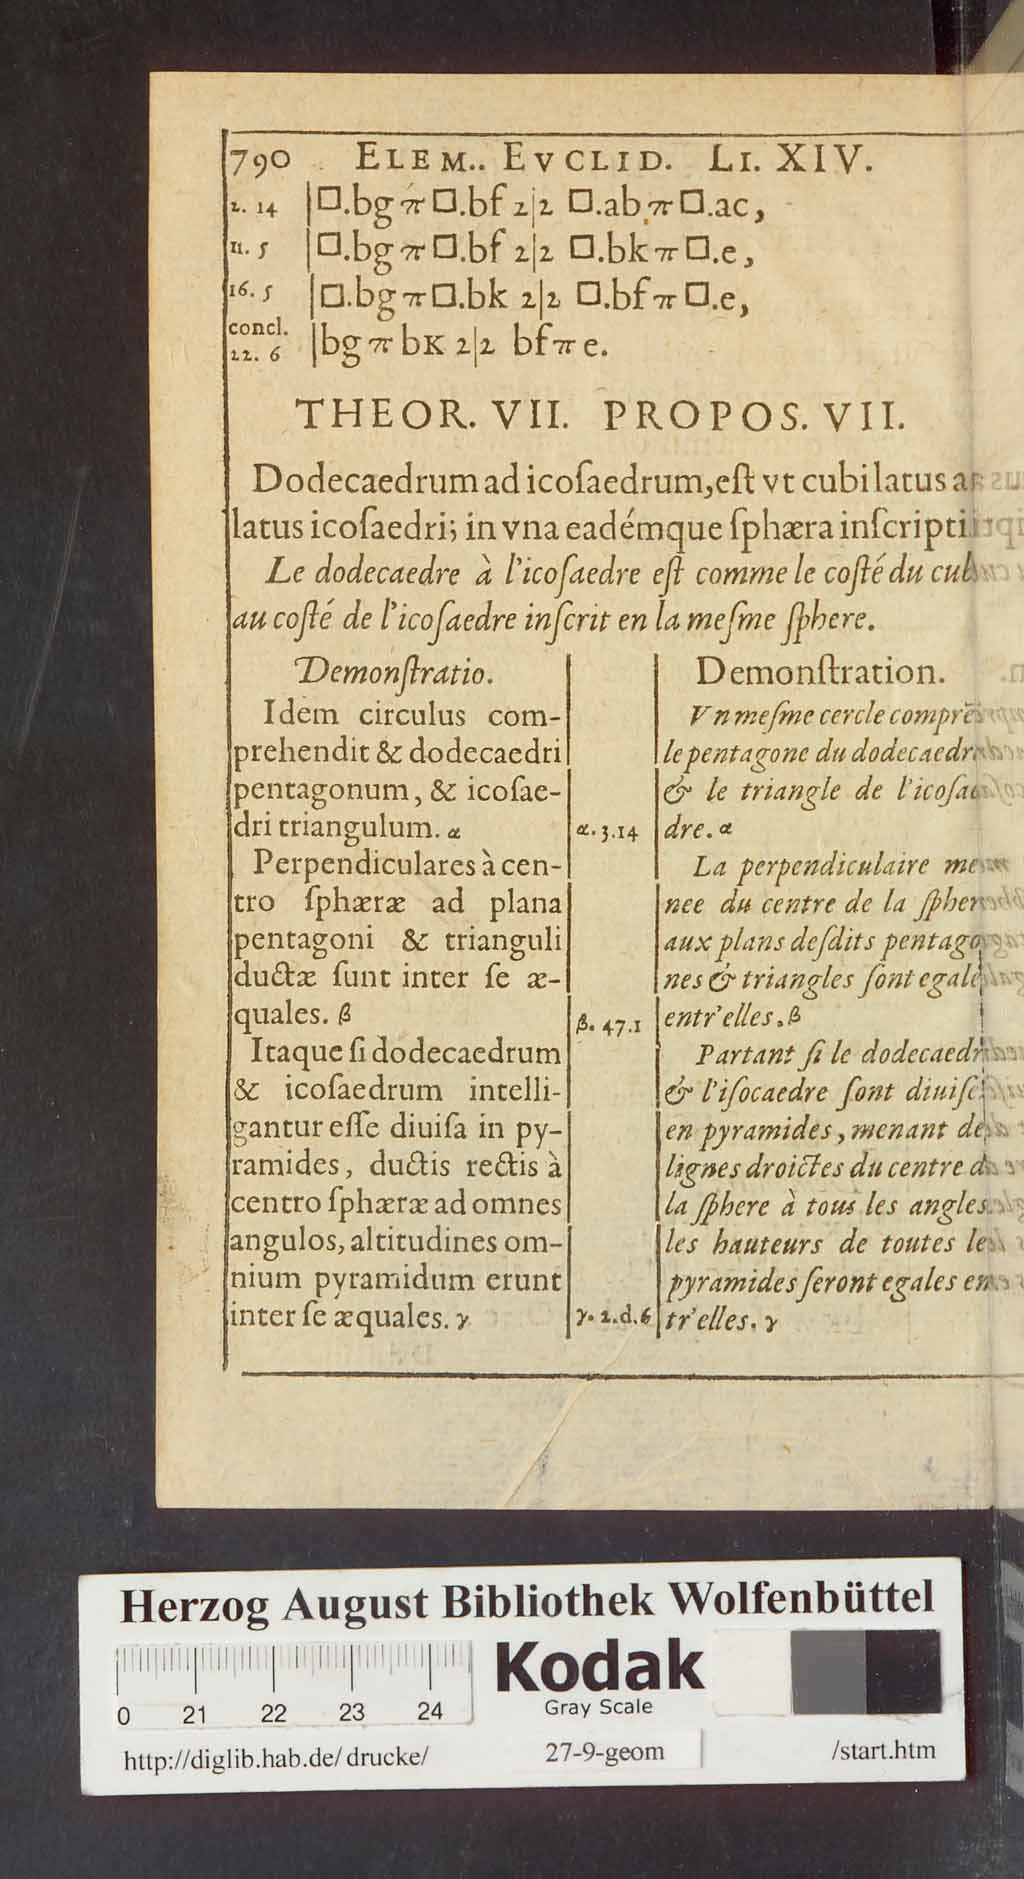 790 ELEM.. EVCLID. LI. XIV.
2. 14 |□.bg π □.bf 2|2 □.ab π □.ac,
11. 5 |□.bg π □.bf 2|2 □.bk π □.e,
16. 5 |□.bg π □.bk 2|2 □.bf π □.e,
concl.
22. 6 |bg π bK 2|2 bf π e.
THEOR. VII. PROPOS. VII.
Dodecaedrum ad icoſaedrum, eſt vt cubi latus
latus icoſaedri; in vna eadémque ſphæra inſcripti
Le dodecaedre à l'icoſaedre eſt comme le coſté du
au coſté de l'icoſaedre inſcrit en la meſme ſphere.
Demonſtratio.
Idem circulus com-
prehendit & dodecaedri
pentagonum, & icoſae-
dri triangulum. α
Perpendiculares à cen-
tro ſphæræ ad plana
pentagoni & trianguli
ductæ ſunt inter ſe æ-
quales. β
Itaque ſi dodecaedrum
& icoſaedrum intelli-
gantur eſſe diuiſa in py-
ramides, ductis rectis à
centro ſphæræ ad omnes
angulos, altitudines om-
nium pyramidum erunt
inter ſe æquales. γ
α. 3.14
β. 47.1
γ. 2.d.6
Demonſtration.
Vn meſme cercle comprẽ
le pentagone du dodecaedr
& le triangle de l'icoſae
dre. α
La perpendiculaire me
nee du centre de la ſphere
aux plans deſdits pentago
nes & triangles ſont egale
entr'elles. β
Partant ſi le dodecaedr
& l'iſocaedre ſont diuiſe
en pyramides, menant de
lignes droictes du centre de
la ſphere à tous les angles
les hauteurs de toutes le
pyramides ſeront egales en
tr'elles. γ
Herzog August Bibliothek Wolfenbüttel
0 21 22 23 24
Kodak
Gray Scale
http://diglib.hab.de/drucke/ 27-9-geom /start.htm